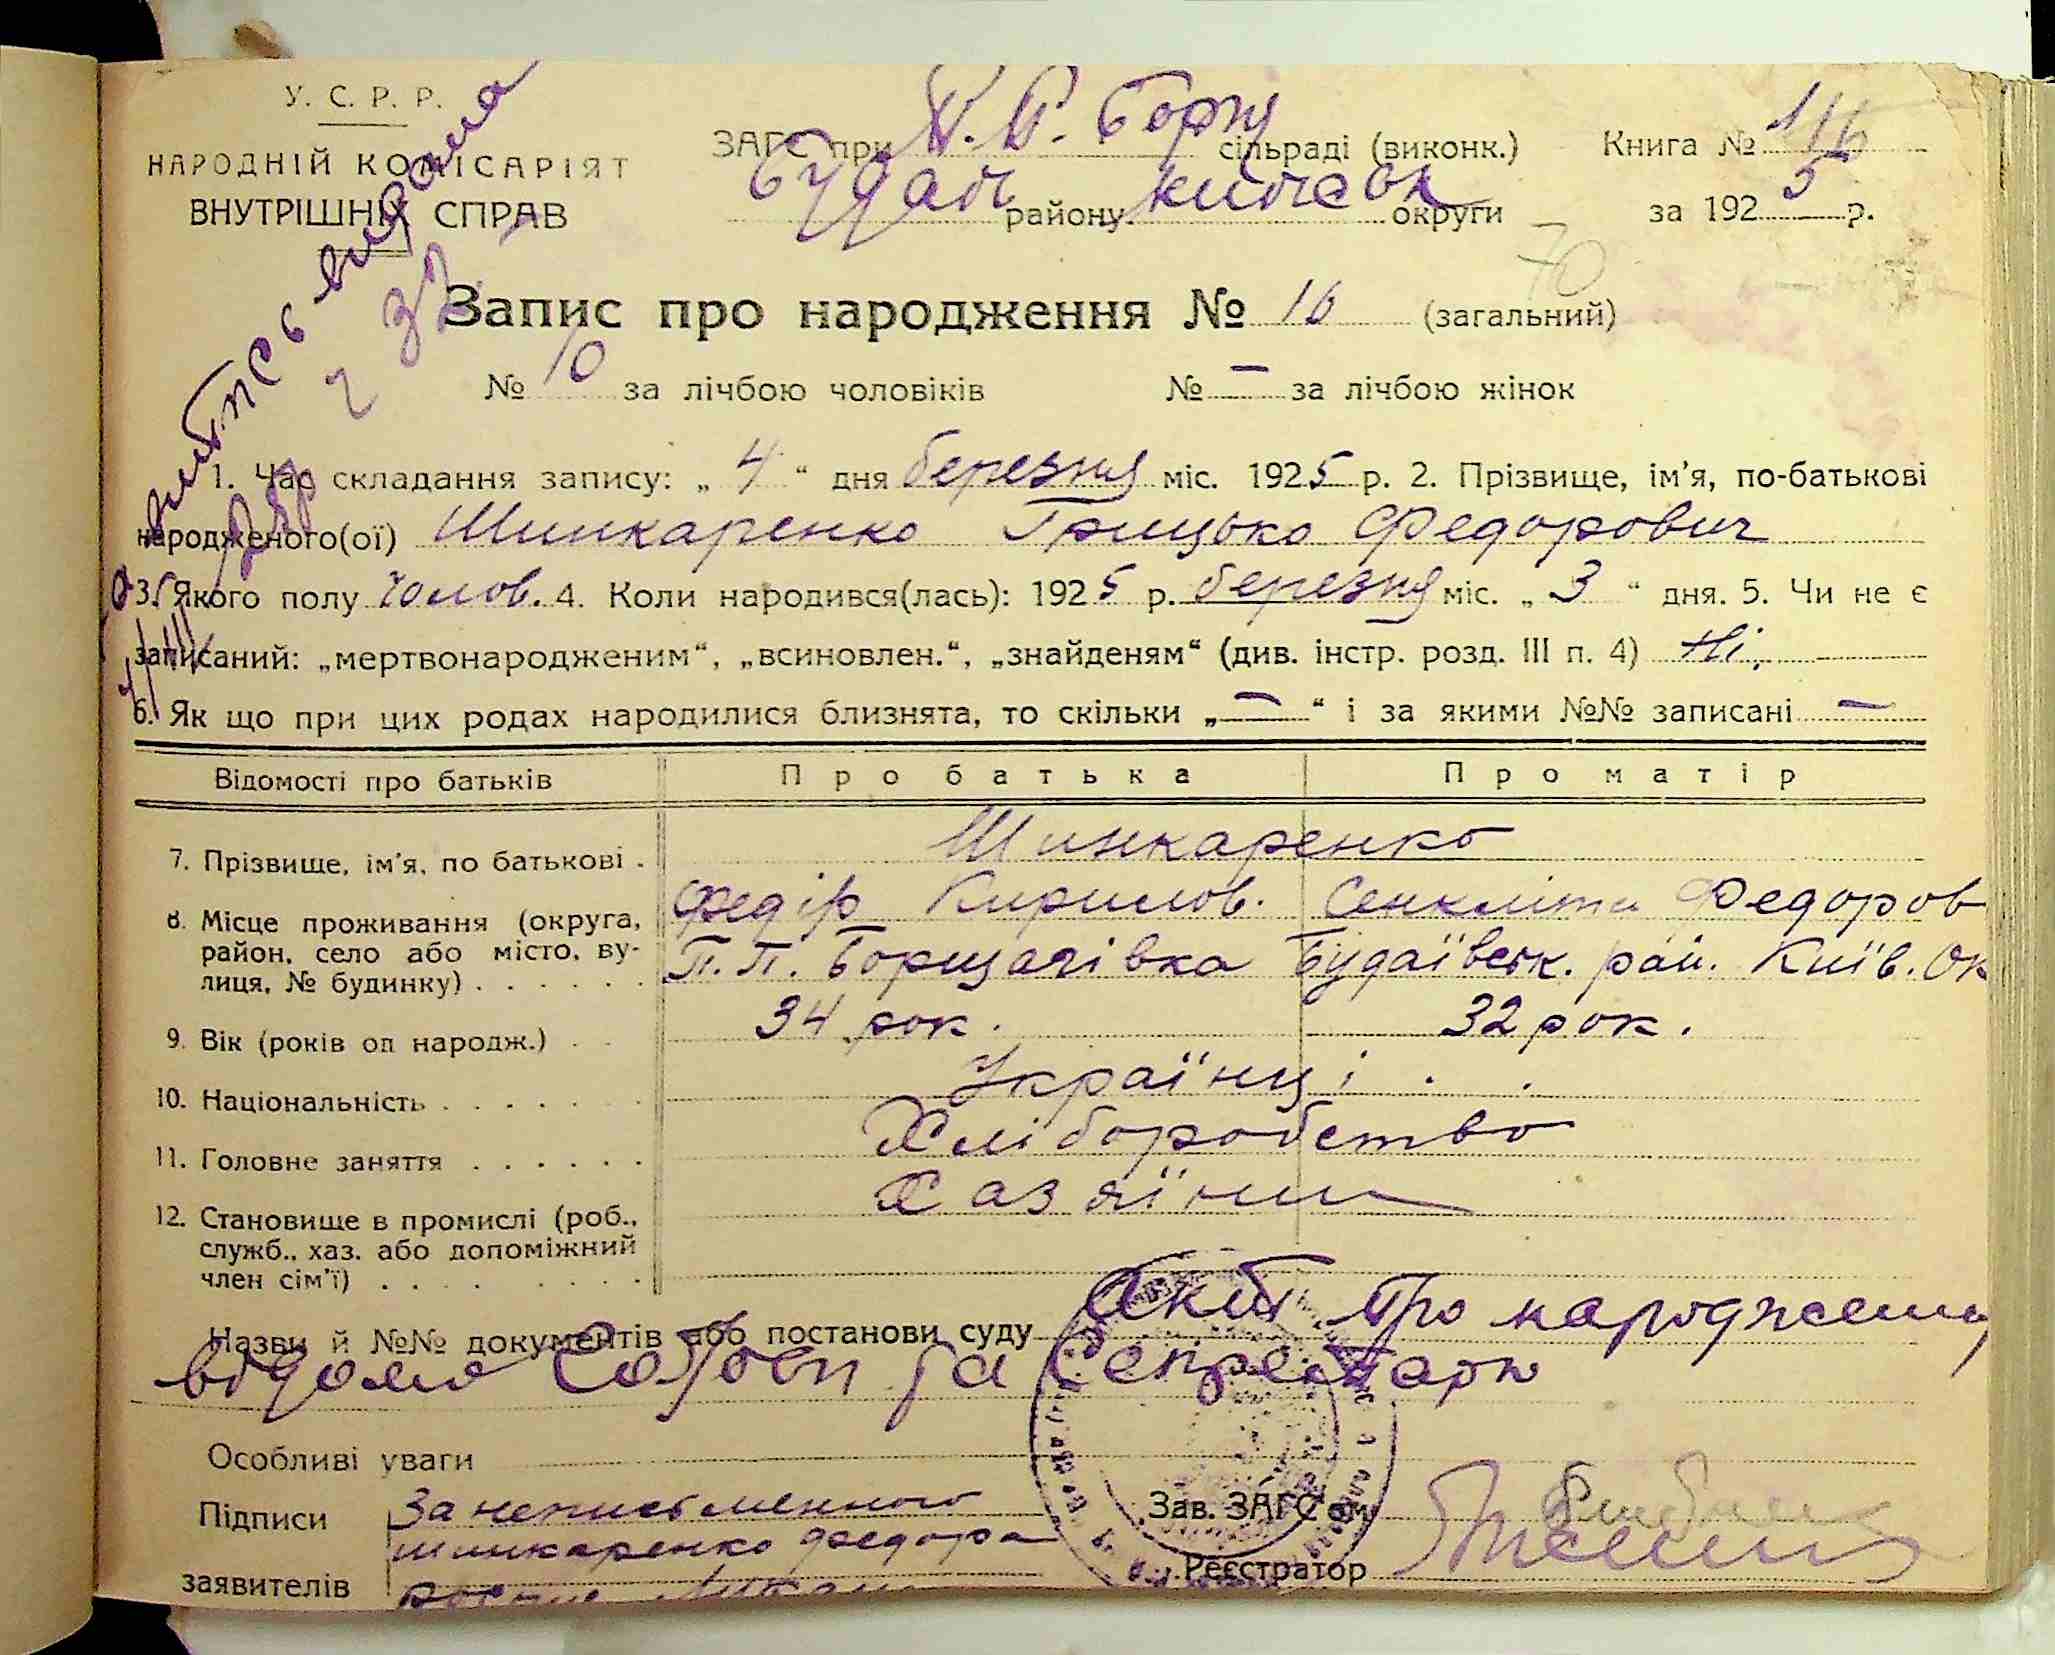 У. С. Р. Р.
НАРОДНІЙ КОМІСАРІЯТ
ВНУТРІШНІХ СПРАВ
ЗАГС при П. П. Борщ сільраді (виконк.)
Будаї району округи
Книга № 1/16
за 1925 р.
Запис про народження № 16 (загальний)
№ 10 за лічбою чоловіків № — за лічбою жінок
1. Час складання запису: „ 4 “ дня березня міс. 1925 р. 2. Прізвище, ім’я, по-батькові
народженого(ої) Шинкаренко Грицько Федорович
3. Якого полу чолов. 4. Коли народився(лась): 1925 р. березня міс. „ 3 “ дня. 5. Чи не є
записаний: „мертвонародженим“, „всиновлен.“, „знайденям“ (див. інстр. розд. III п. 4) Ні.
6. Як що при цих родах народилися близнята, то скільки „ — “ і за якими №№ записані —
Відомості про батьків Про батька Про матір
7. Прізвище, ім’я, по батькові . Шинкаренко
Федір Кирилов. Сенкліта Федоров
8. Місце проживання (округа,
район, село або місто, ву-
лиця, № будинку) . . . . . .
П. П. Борщагівка Будаївськ. рай. Київ. Ок
9. Вік (років од народж.) . . 34 рок. 32 рок.
10. Національність . . . . . . . Українці
11. Головне заняття . . . . . . Хліборобство
12. Становище в промислі (роб.,
служб., хаз. або допоміжний
член сім’ї) . . . . . . . . .
Хазяїни
Назви й №№ документів або постанови суду Акт про народження
відомо Голови та Секретаря
Особливі уваги
Підписи За неписьменного
Шинкаренко Федора
заявителів
Зав. ЗАГС'ом
Реєстратор